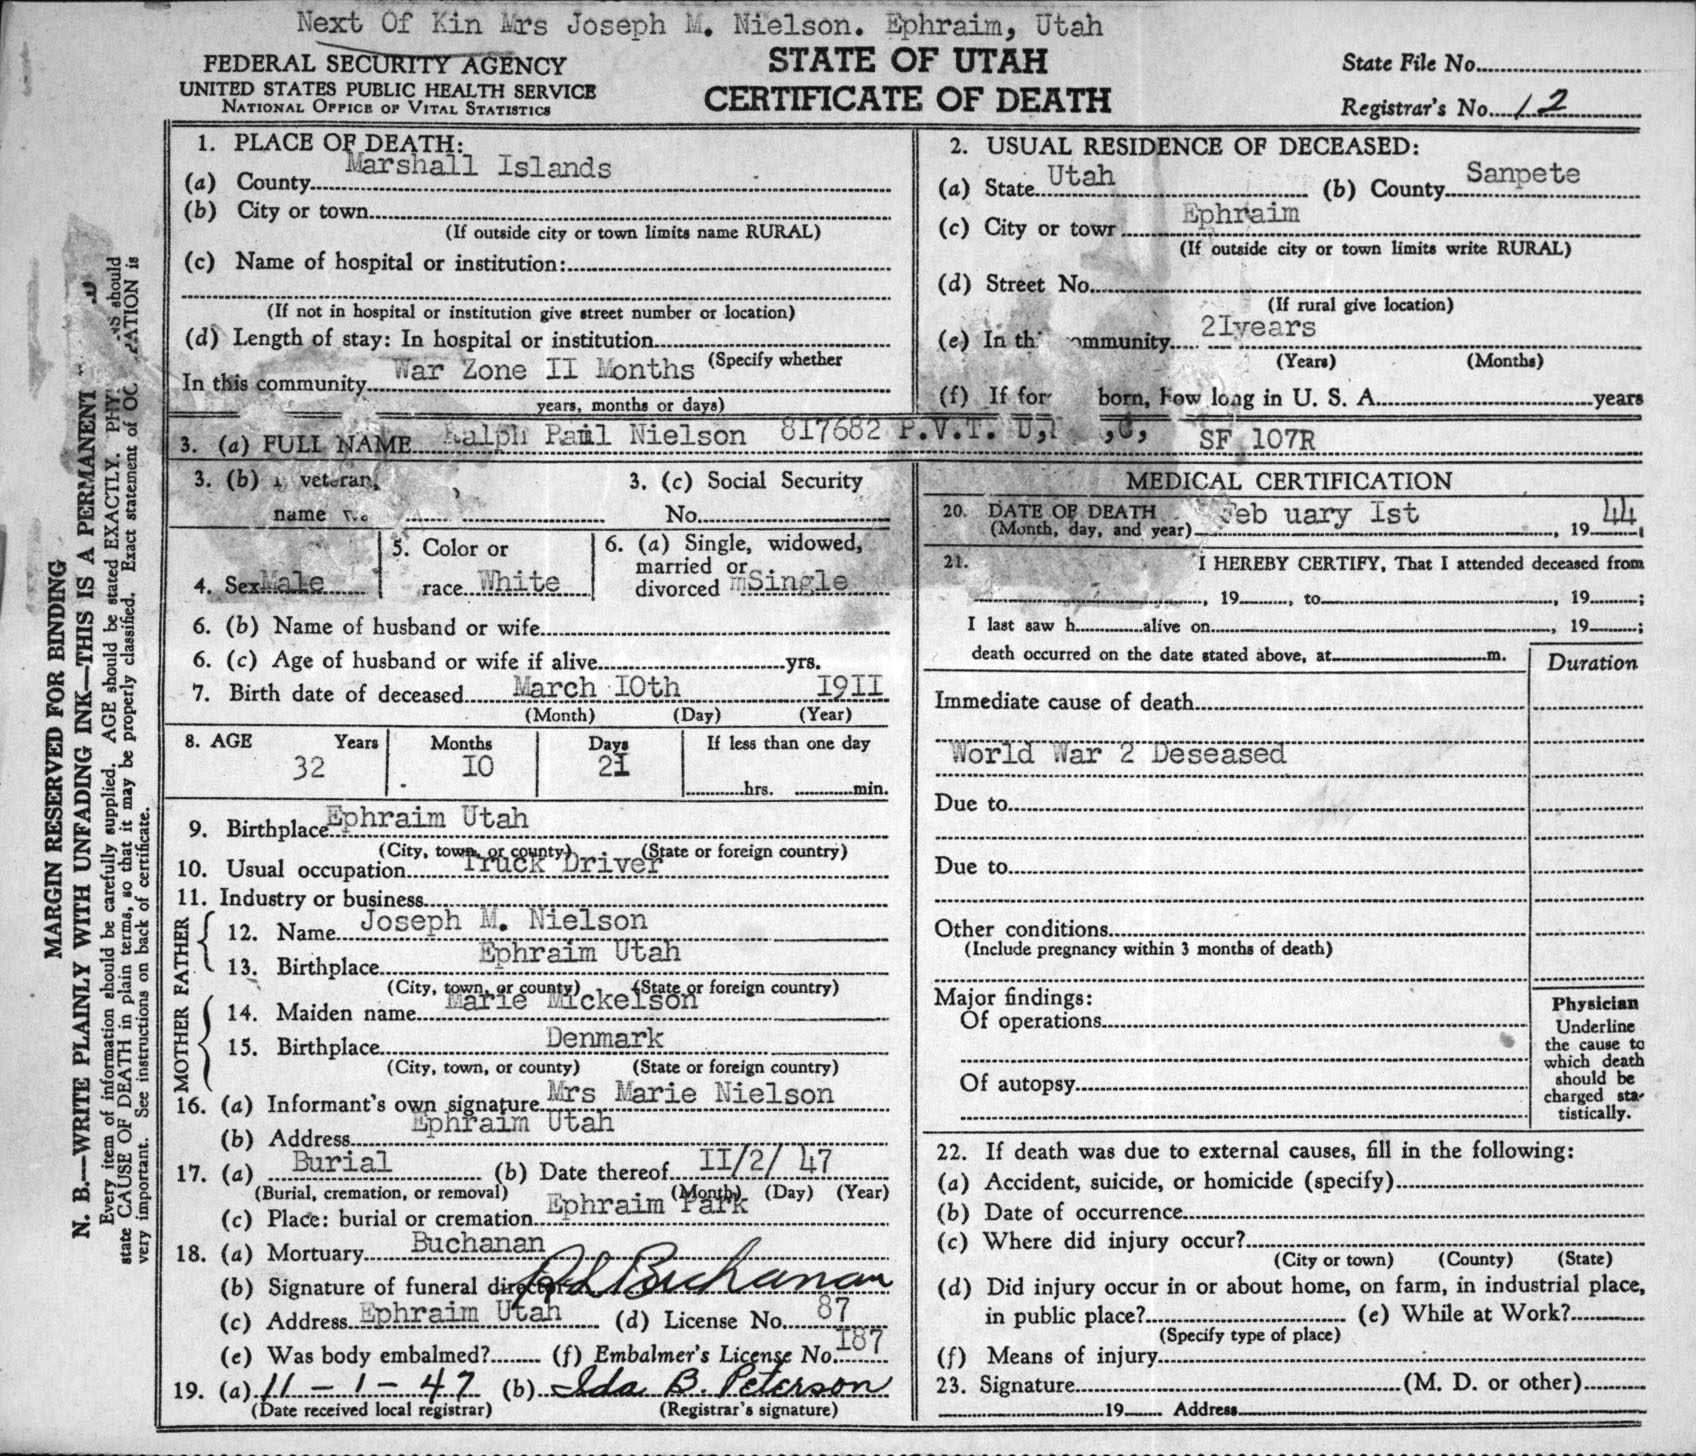 Next Of Kin Mrs Joseph M. Nielson. Ephraim, Utah
FEDERAL SECURITY AGENCY
UNITED STATES PUBLIC HEALTH SERVICE
NATIONAL OFFICE OF VITAL STATISTICS
STATE OF UTAH
CERTIFICATE OF DEATH
State File No.
Registrar's No. 12
MARGIN RESERVED FOR BINDING
N. B.—WRITE PLAINLY WITH UNFADING INK—THIS IS A PERMANENT
Every item of information should be carefully supplied. AGE should be stated EXACTLY. PHY should
state CAUSE OF DEATH in plain terms, so that it may be properly classified. Exact statement of OC ATION is
very important. See instructions on back of certificate.
1. PLACE OF DEATH:
(a) County Marshall Islands
(b) City or town
(If outside city or town limits name RURAL)
(c) Name of hospital or institution:
(If not in hospital or institution give street number or location)
(d) Length of stay: In hospital or institution
(Specify whether
In this community War Zone II Months
years, months or days)
2. USUAL RESIDENCE OF DECEASED:
(a) State Utah (b) County Sanpete
(c) City or town Ephraim
(If outside city or town limits write RURAL)
(d) Street No.
(If rural give location)
(e) In th ommunity 2Iyears
(Years) (Months)
(f) If for born, how long in U. S. A. years
3. (a) FULL NAME Ralph Paul Nielson 817682 P.V.T. U, ,C, SF 107R
3. (b) veteran,
name
3. (c) Social Security
No.
4. Sex Male
5. Color or
race White
6. (a) Single, widowed,
married or
divorced mSingle
6. (b) Name of husband or wife
6. (c) Age of husband or wife if alive yrs.
7. Birth date of deceased March I0th I9II
(Month) (Day) (Year)
8. AGE Years Months Days If less than one day
32 I0 2I
hrs. min.
9. Birthplace Ephraim Utah
(City, town, or county) (State or foreign country)
10. Usual occupation Truck Driver
11. Industry or business
FATHER
12. Name Joseph M. Nielson
13. Birthplace Ephraim Utah
(City, town, or county) (State or foreign country)
MOTHER
14. Maiden name Marie Mickelson
15. Birthplace Denmark
(City, town, or county) (State or foreign country)
16. (a) Informant's own signature Mrs Marie Nielson
(b) Address Ephraim Utah
17. (a) Burial (b) Date thereof II/2/ 47
(Burial, cremation, or removal) (Month) (Day) (Year)
(c) Place: burial or cremation Ephraim Park
18. (a) Mortuary Buchanan
(b) Signature of funeral director Buchanan
(c) Address Ephraim Utah (d) License No. 87
(e) Was body embalmed? (f) Embalmer's License No. I87
19. (a) 11 – 1 – 47 (b) Ida B. Peterson
(Date received local registrar) (Registrar's signature)
MEDICAL CERTIFICATION
20. DATE OF DEATH
(Month, day, and year) Feb uary Ist , 19 44
21. I HEREBY CERTIFY, That I attended deceased from
, 19 , to , 19 ;
I last saw h alive on , 19 ;
death occurred on the date stated above, at m.
Duration
Immediate cause of death
World War 2 Deseased
Due to
Due to
Other conditions
(Include pregnancy within 3 months of death)
Major findings:
Of operations
Of autopsy
Physician
Underline
the cause to
which death
should be
charged sta-
tistically.
22. If death was due to external causes, fill in the following:
(a) Accident, suicide, or homicide (specify)
(b) Date of occurrence
(c) Where did injury occur?
(City or town) (County) (State)
(d) Did injury occur in or about home, on farm, in industrial place,
in public place? (e) While at Work?
(Specify type of place)
(f) Means of injury
23. Signature (M. D. or other)
19 Address